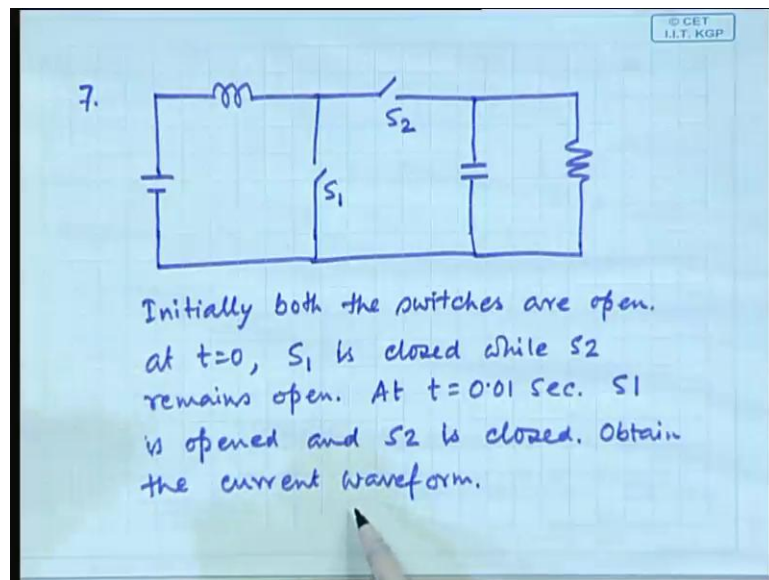 © CET
I.I.T. KGP
7.
S2
S1
Initially both the switches are open.
at t=0, S1 is closed while S2
remains open. At t=0.01 sec. S1
is opened and S2 is closed. Obtain
the current waveform.